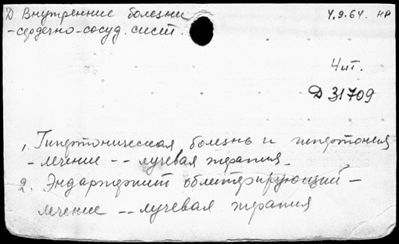 Д Внутренние болезни
4.9.64. нр
-сердечно-сосуд. сист.
Чит.
Д 31709
1. Гипертоническая болезнь и гипертония
- лечение -- лучевая терапия.
2. Эндартериит облитерирующий -
лечение -- лучевая терапия